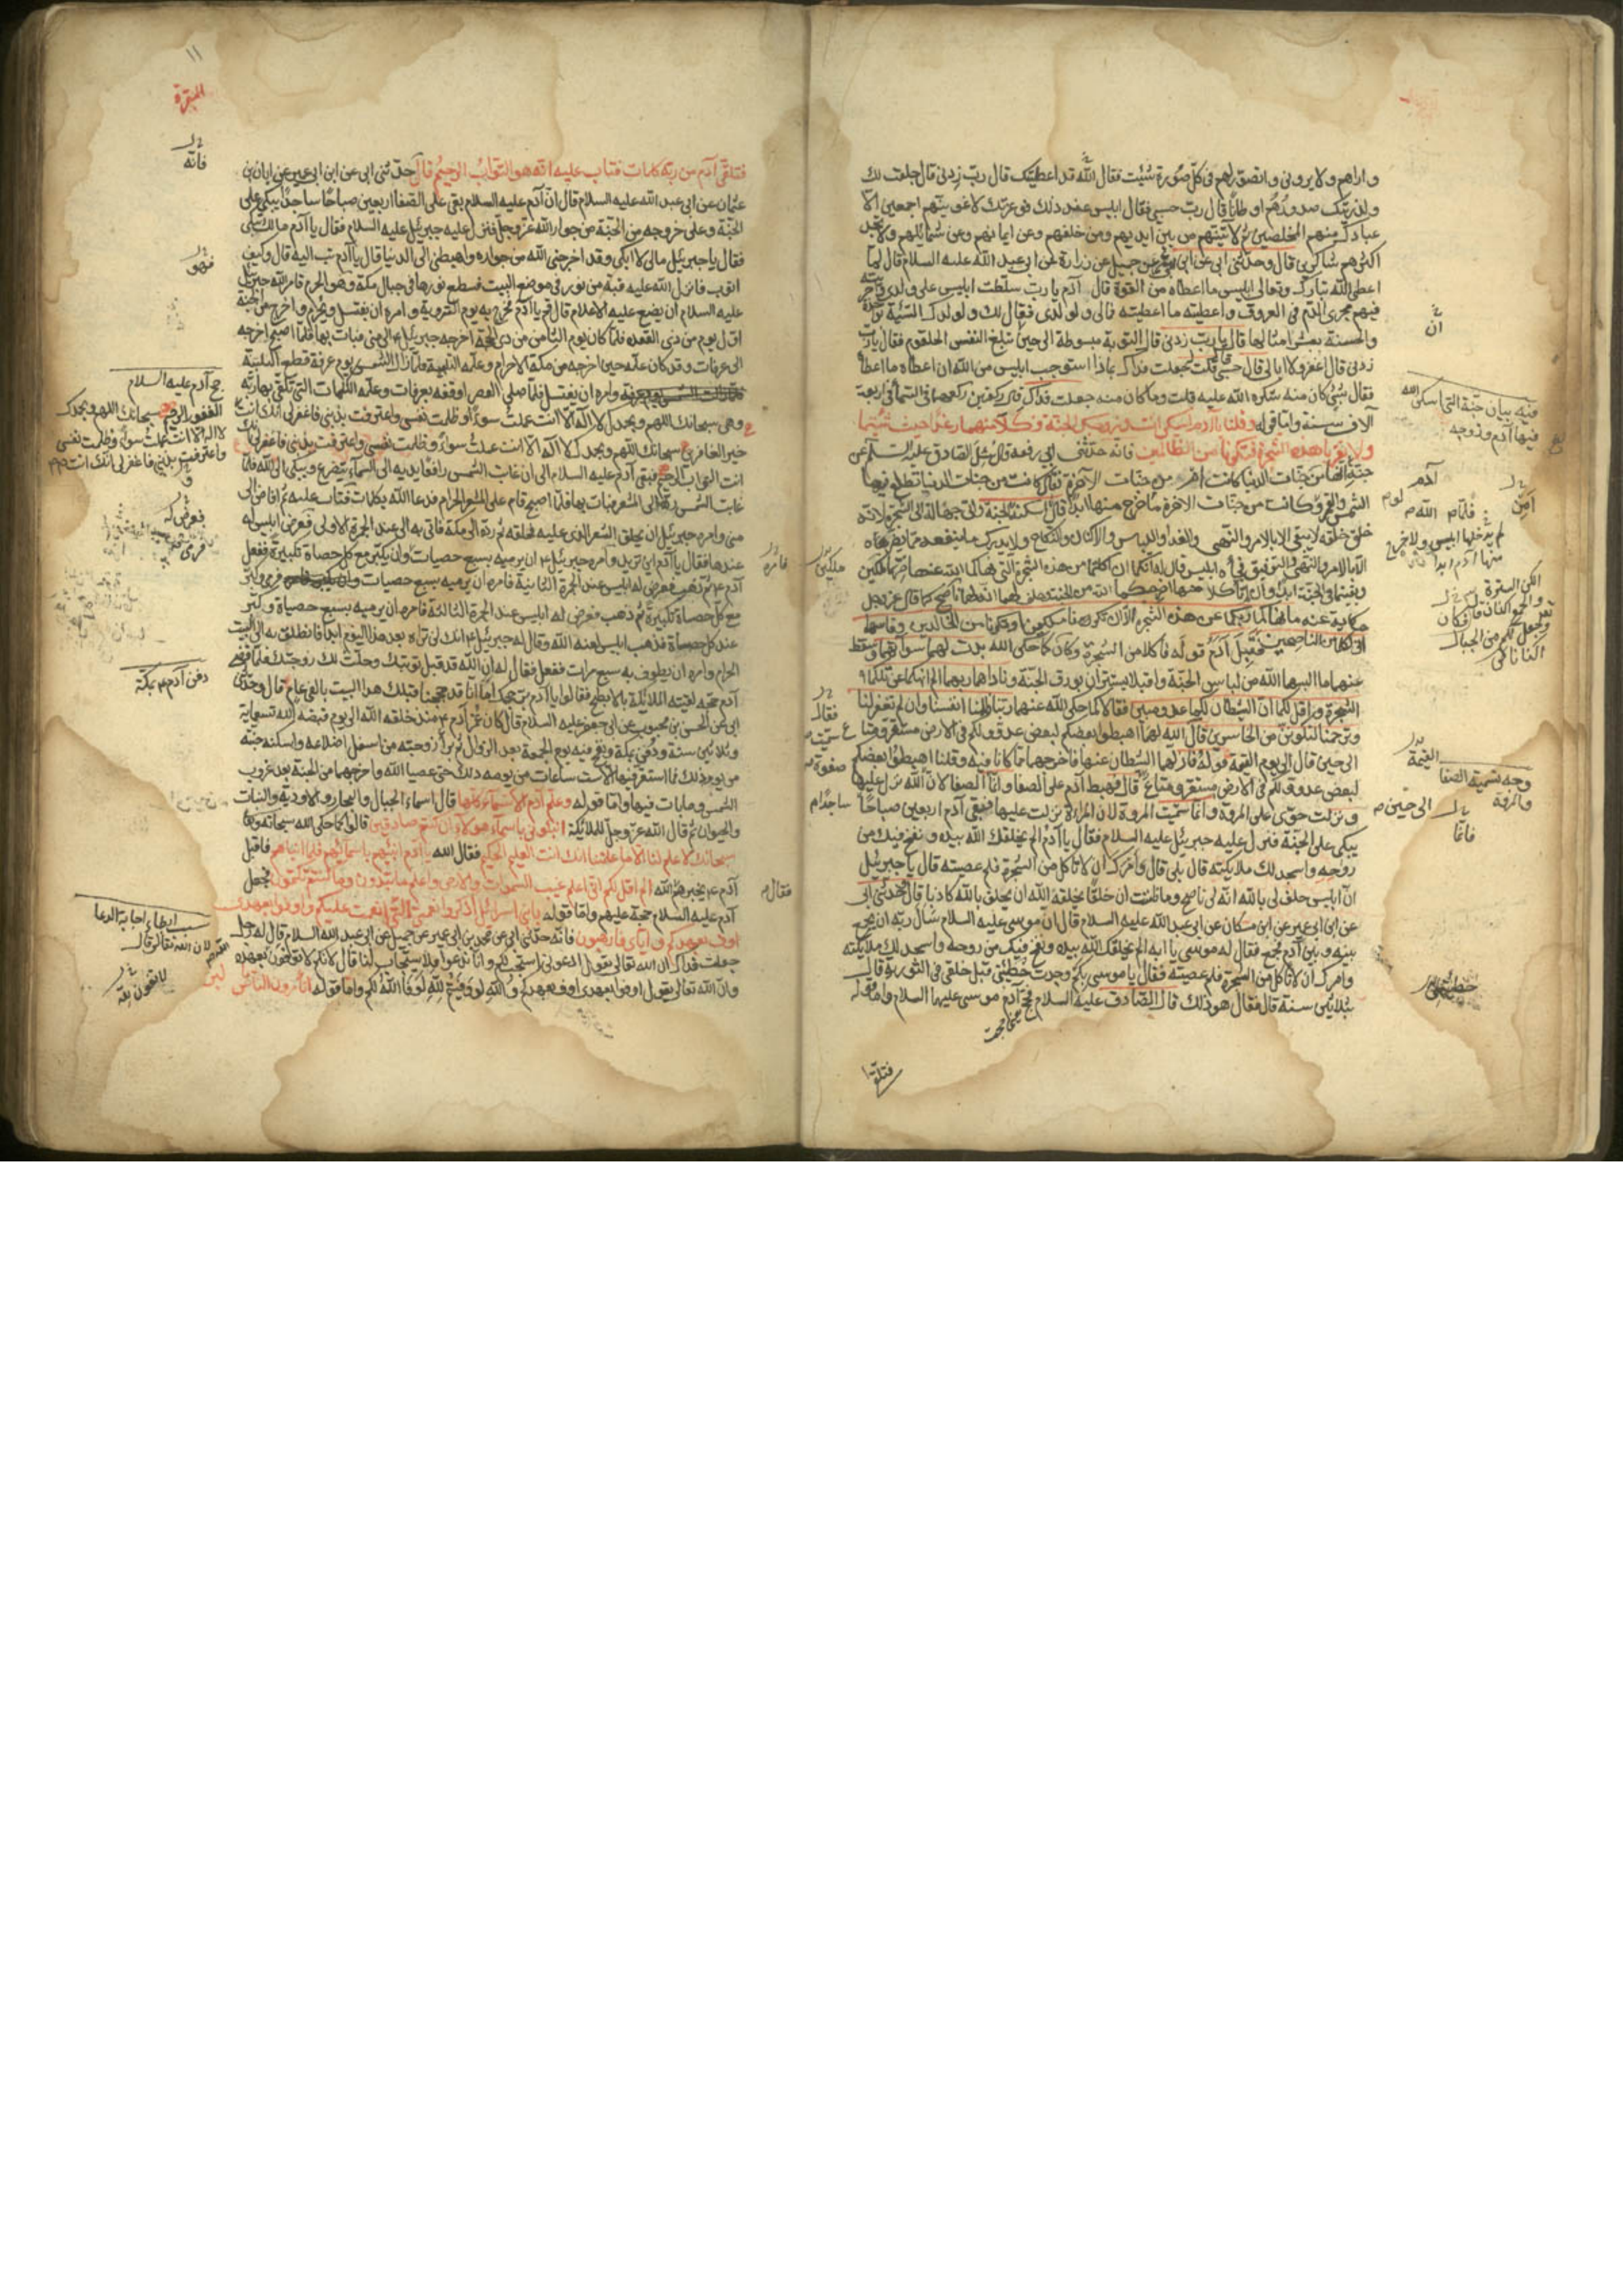 و اراهم ولا يروني واتصور لهم في كل صورة شئت فقال الله قد اعطيتك قال رب زدني قال جعلت لك
ولذريتك صدورهم اوطانا قال رب حسبي فقال ابليس عند ذلك فبعزتك لاغوينهم اجمعين الا
عبادك منهم المخلصين ثم لآتينهم من بين ايديهم ومن خلفهم وعن ايمانهم وعن شمائلهم ولا تجد
اكثرهم شاكرين قال وحدثني ابي عن ابن ابي عمير عن جميل عن زرارة عن ابي عبد الله عليه السلام قال لما
اعطى الله تبارك وتعالى ابليس ما اعطاه من القوة قال آدم يا رب سلطت ابليس على ولدي واجريته
فيهم مجرى الدم في العروق واعطيته ما اعطيته فما لي ولولدي فقال لك ولولدك السيئة بواحدة
والحسنة بعشر امثالها قال يا رب زدني قال التوبة مبسوطة الى حين تبلغ النفس الحلقوم فقال يا رب
زدني قال اغفر ولا ابالي قال حسبي قال قلت جعلت فداك بماذا استوجب ابليس من الله ان اعطاه ما اعطاه
فقال بشئ كان منه شكره الله عليه قلت وما كان منه جعلت فداك قال ركعتين ركعهما في السماء في اربعة
آلاف سنة واما قوله وقلنا يا آدم اسكن انت وزوجك الجنة وكلا منها رغدا حيث شئتما
ولا تقربا هذه الشجرة فتكونا من الظالمين فانه حدثني ابي رفعه قال سئل الصادق عليه السلام عن
جنة آدم امن جنات الدنيا كانت ام من جنات الآخرة فقال كانت من جنات الدنيا تطلع فيها
الشمس والقمر ولو كانت من جنات الآخرة ما خرج منها ابدا قال اسكنه الجنة واتى جهالة الى الشجرة لانه
خلق خلقة لا تبقى الا بالامر والنهي والغذا واللباس والاكنان والنكاح ولا يدرك ما ينفعه مما يضره
الا بالامر والنهي والتوفيق فجاءه ابليس فقال له انكما ان اكلتما من هذه الشجرة التي نهاكما الله عنها صرتما ملكين
وبقيتما في الجنة ابدا وان لم تأكلا منها اخرجكما الله من الجنة وحلف لهما انه لهما ناصح كما قال عز وجل
حكاية عنه ما نهاكما ربكما عن هذه الشجرة الا ان تكونا ملكين او تكونا من الخالدين وقاسمهما
اني لكما لمن الناصحين فقبل آدم قوله فاكلا من الشجرة وكان كما حكى الله بدت لهما سوآتهما وسقط
عنهما ما البسهما الله من لباس الجنة واقبلا يستتران بورق الجنة وناداهما ربهما الم انهكما عن تلكما
الشجرة واقل لكما ان الشيطان لكما عدو مبين فقالا كما حكى الله عنهما ربنا ظلمنا انفسنا وان لم تغفر لنا
وترحمنا لنكونن من الخاسرين قال الله لهما اهبطوا بعضكم لبعض عدو ولكم في الارض مستقر ومتاع
الى حين قال الى يوم القيمة قوله فازلهما الشيطان عنها فاخرجهما مما كانا فيه وقلنا اهبطوا بعضكم
لبعض عدو ولكم في الارض مستقر ومتاع قال فهبط آدم على الصفا وانما الصفا لان الله نزل عليها
ونزلت حوى على المروة وانما سميت المروة لان المراة نزلت عليها فبقى آدم اربعين صباحا
يبكي على الجنة فنزل عليه جبرئيل عليه السلام فقال يا آدم الم يخلقك الله بيده ونفخ فيك من
روحه واسجد لك ملايكته قال بلى قال وامرك ان لا تاكل من الشجرة فلم عصيته قال يا جبرئيل
ان ابليس حلف لي بالله انه لي ناصح وما ظننت ان خلقا يخلقه الله ان يحلف بالله كاذبا قال وحدثني ابي
عن ابن ابي عمير عن ابن مسكان عن ابي عبد الله عليه السلام قال ان موسى عليه السلام سأل ربه ان يجمع
بينه وبين آدم فجمع فقال له موسى يا ابه الم يخلقك الله بيده ونفخ فيك من روحه واسجد لك ملايكته
وامرك ان لا تاكل من الشجرة فلم عصيته فقال يا موسى بكم وجدت خطيئتي قبل خلقي في التورية قال
بثلاثين سنة قال فقال هو ذلك قال الصادق عليه السلام فحج آدم موسى عليهما السلام واما قوله
فتلقى
ان
فيه بيان جنة التي اسكن الله
فيها آدم وزوجه
لم يدخلها ابليس
القيمة
وجه تسمية الصفا
والمروة
الى حين
فانما
ملكين
فقال
ساجدا
١١
البقرة
فتلقى آدم من ربه كلمات فتاب عليه انه هو التواب الرحيم قال حدثني ابي عن ابن ابي عمير عن ابان بن
عثمان عن ابي عبد الله عليه السلام قال ان آدم عليه السلام بقى على الصفا اربعين صباحا ساجدا يبكي على
الجنة وعلى خروجه من الجنة من جوار الله عز وجل فنزل عليه جبرئيل عليه السلام فقال يا آدم مالك تبكي
فقال يا جبرئيل مالي لا ابكي وقد اخرجني الله من جواره واهبطني الى الدنيا قال يا آدم تب اليه قال وكيف
اتوب فانزل الله عليه قبة من نور في موضع البيت فسطع نورها في جبال مكة فهو الحرم فامر الله جبرئيل
عليه السلام ان يضع عليه الاعلام قال قم يا آدم فخرج به يوم التروية وامره ان يغتسل ويحرم واخرج من الجنة
اول يوم من ذي القعدة فلما كان يوم الثامن من ذي الحجة اخرجه جبرئيل الى منى فبات بها فلما اصبح اخرجه
الى عرفات وقد كان علمه حين اخرجه من مكة الاحرام وعلمه التلبية فلما زالت الشمس يوم عرفة قطع التلبية
وامره ان يغتسل فلما صلى العصر اوقفه بعرفات وعلمه الكلمات التي تلقى بها ربه
وهي سبحانك اللهم وبحمدك لا اله الا انت عملت سوءا وظلمت نفسي واعترفت بذنبي فاغفر لي انك انت
خير الغافرين سبحانك اللهم وبحمدك لا اله الا انت عملت سوءا وظلمت نفسي واعترفت بذنبي فاغفر لي انك
انت التواب الرحيم فبقى آدم عليه السلام الى ان غابت الشمس رافعا يديه الى السماء يتضرع ويبكي الى الله فلما
غابت الشمس رده الى المشعر فبات بها فلما اصبح قام على المشعر الحرام فدعا الله بكلمات فتاب عليه ثم افاض الى
منى وامره جبرئيل ان يحلق الشعر الذي عليه فحلقه ثم رده الى مكة فاتى به الى عند الجمرة الاولى فعرض ابليس له
عندها فقال يا آدم اين تريد وامره جبرئيل ان يرميه بسبع حصيات وان يكبر مع كل حصاة تكبيرة ففعل
آدم ثم ذهب فعرض له ابليس عند الجمرة الثانية فامره ان يرميه بسبع حصيات فرمى وكبر
مع كل حصاة تكبيرة ثم ذهب فعرض له ابليس عند الجمرة الثالثة فامره ان يرميه بسبع حصياة وكبر
عند كل حصاة فذهب ابليس لعنه الله وقال له جبرئيل انك لن تراه بعد هذا اليوم ابدا فانطلق به الى البيت
الحرام وامره ان يطوف به سبع مرات ففعل فقال له ان الله قد قبل توبتك وحلت لك زوجتك فلما قضى
آدم حجه لقيته الملائكة بالابطح فقالوا يا آدم بر حجك اما انا قد حججنا قبلك هذا البيت بالفي عام قال وحدثني
ابي عن الحسن بن محبوب عن ابي جعفر عليه السلام قال كان عمر آدم منذ خلقه الله الى يوم قبضه الله تسعماية
وثلاثين سنة ودفن بمكة ونفخ فيه يوم الجمعة بعد الزوال ثم برا زوجته من اسفل اضلاعه واسكنه جنته
من يومه ذلك فما استقر فيها الا ست ساعات من يومه ذلك حتى عصيا الله واخرجهما من الجنة بعد غروب
الشمس وما بات فيها واما قوله وعلم آدم الاسماء كلها قال اسماء الجبال والبحار والاودية والنبات
والحيوان ثم قال الله عز وجل للملائكة انبئوني باسماء هولاء ان كنتم صادقين قالوا كما حكى الله سبحانه وتعا
سبحانك لا علم لنا الا ما علمتنا انك انت العليم الحكيم فقال الله يا آدم انبئهم باسمائهم فلما انباهم فاقبل
آدم يخبرهم الله الم اقل لكم اني اعلم غيب السموات والارض واعلم ما تبدون وما كنتم تكتمون فجعل
آدم عليه السلام حجة عليهم واما قوله يا بني اسرائيل اذكروا نعمتي التي انعمت عليكم واوفوا بعهدي
اوف بعهدكم واياي فارهبون فانه حدثني ابي عن محمد بن ابي عمير عن جميل عن ابي عبد الله السلام قال له رجل
جعلت فداك ان الله تعالى يقول ادعوني استجب لكم وانا ندعوا فلا يستجاب لنا قال لانكم لا توفون بعهده
وان الله تعالى يقول اوفوا بعهدي اوف بعهدكم والله لو وفيتم لله لوفا الله لكم واما قوله اتامرون الناس
فانه
فهو
حج آدم عليه السلام
الغفور الرحيم سبحانك اللهم وبحمدك
لا اله الا انت عملت سوءا وظلمت نفسي
واعترفت بذنبي فاغفر لي انك انت
فعرض له
فامره
دفن آدم بمكة
فقال
سبب ابطاء اجابة الدعا
لا تفون لله